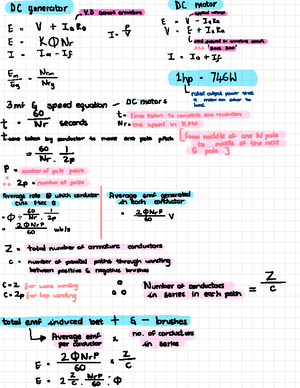 DC generator
V.D across armature
E = V + IaRa
I = P/V
E = KΦNr
I = Ia - If
Em/Eg = Nrm/Nrg
DC motor
applied voltage
E = V - IaRa
V = E + IaRa
emf induced in armature count
AKA 'Back Emf'
I = Ia + If
1hp - 746W
rated output power that a motor can offer to load
emf & speed equation - DC motors
t = 60/Nr seconds
t = time taken to complete one revolution
Nr = the speed in RPM
t = time taken by conductor to move one pole pitch
= 60/Nr · 1/2p
[From middle of one N pole to middle of the next S pole]
P = number of pole pairs
∴ 2p = number of poles
Average rate @ which conductor cuts flux Φ
= Φ ÷ 60/Nr · 1/2p
= 2ΦNrP/60 wb/s
Average emf generated in each conductor
= 2ΦNrP/60 V
Z = total number of armature conductors
c = number of parallel paths through winding between positive & negative brushes
c = 2 for wave winding
c = 2p for lap winding
Number of conductors in series in each path = Z/c
total emf induced bet + & - brushes
= Average emf per conductor × no. of conductors in series
E = 2ΦNrP/60 × Z/c
E = 2 Z/c · NrP/60 · Φ